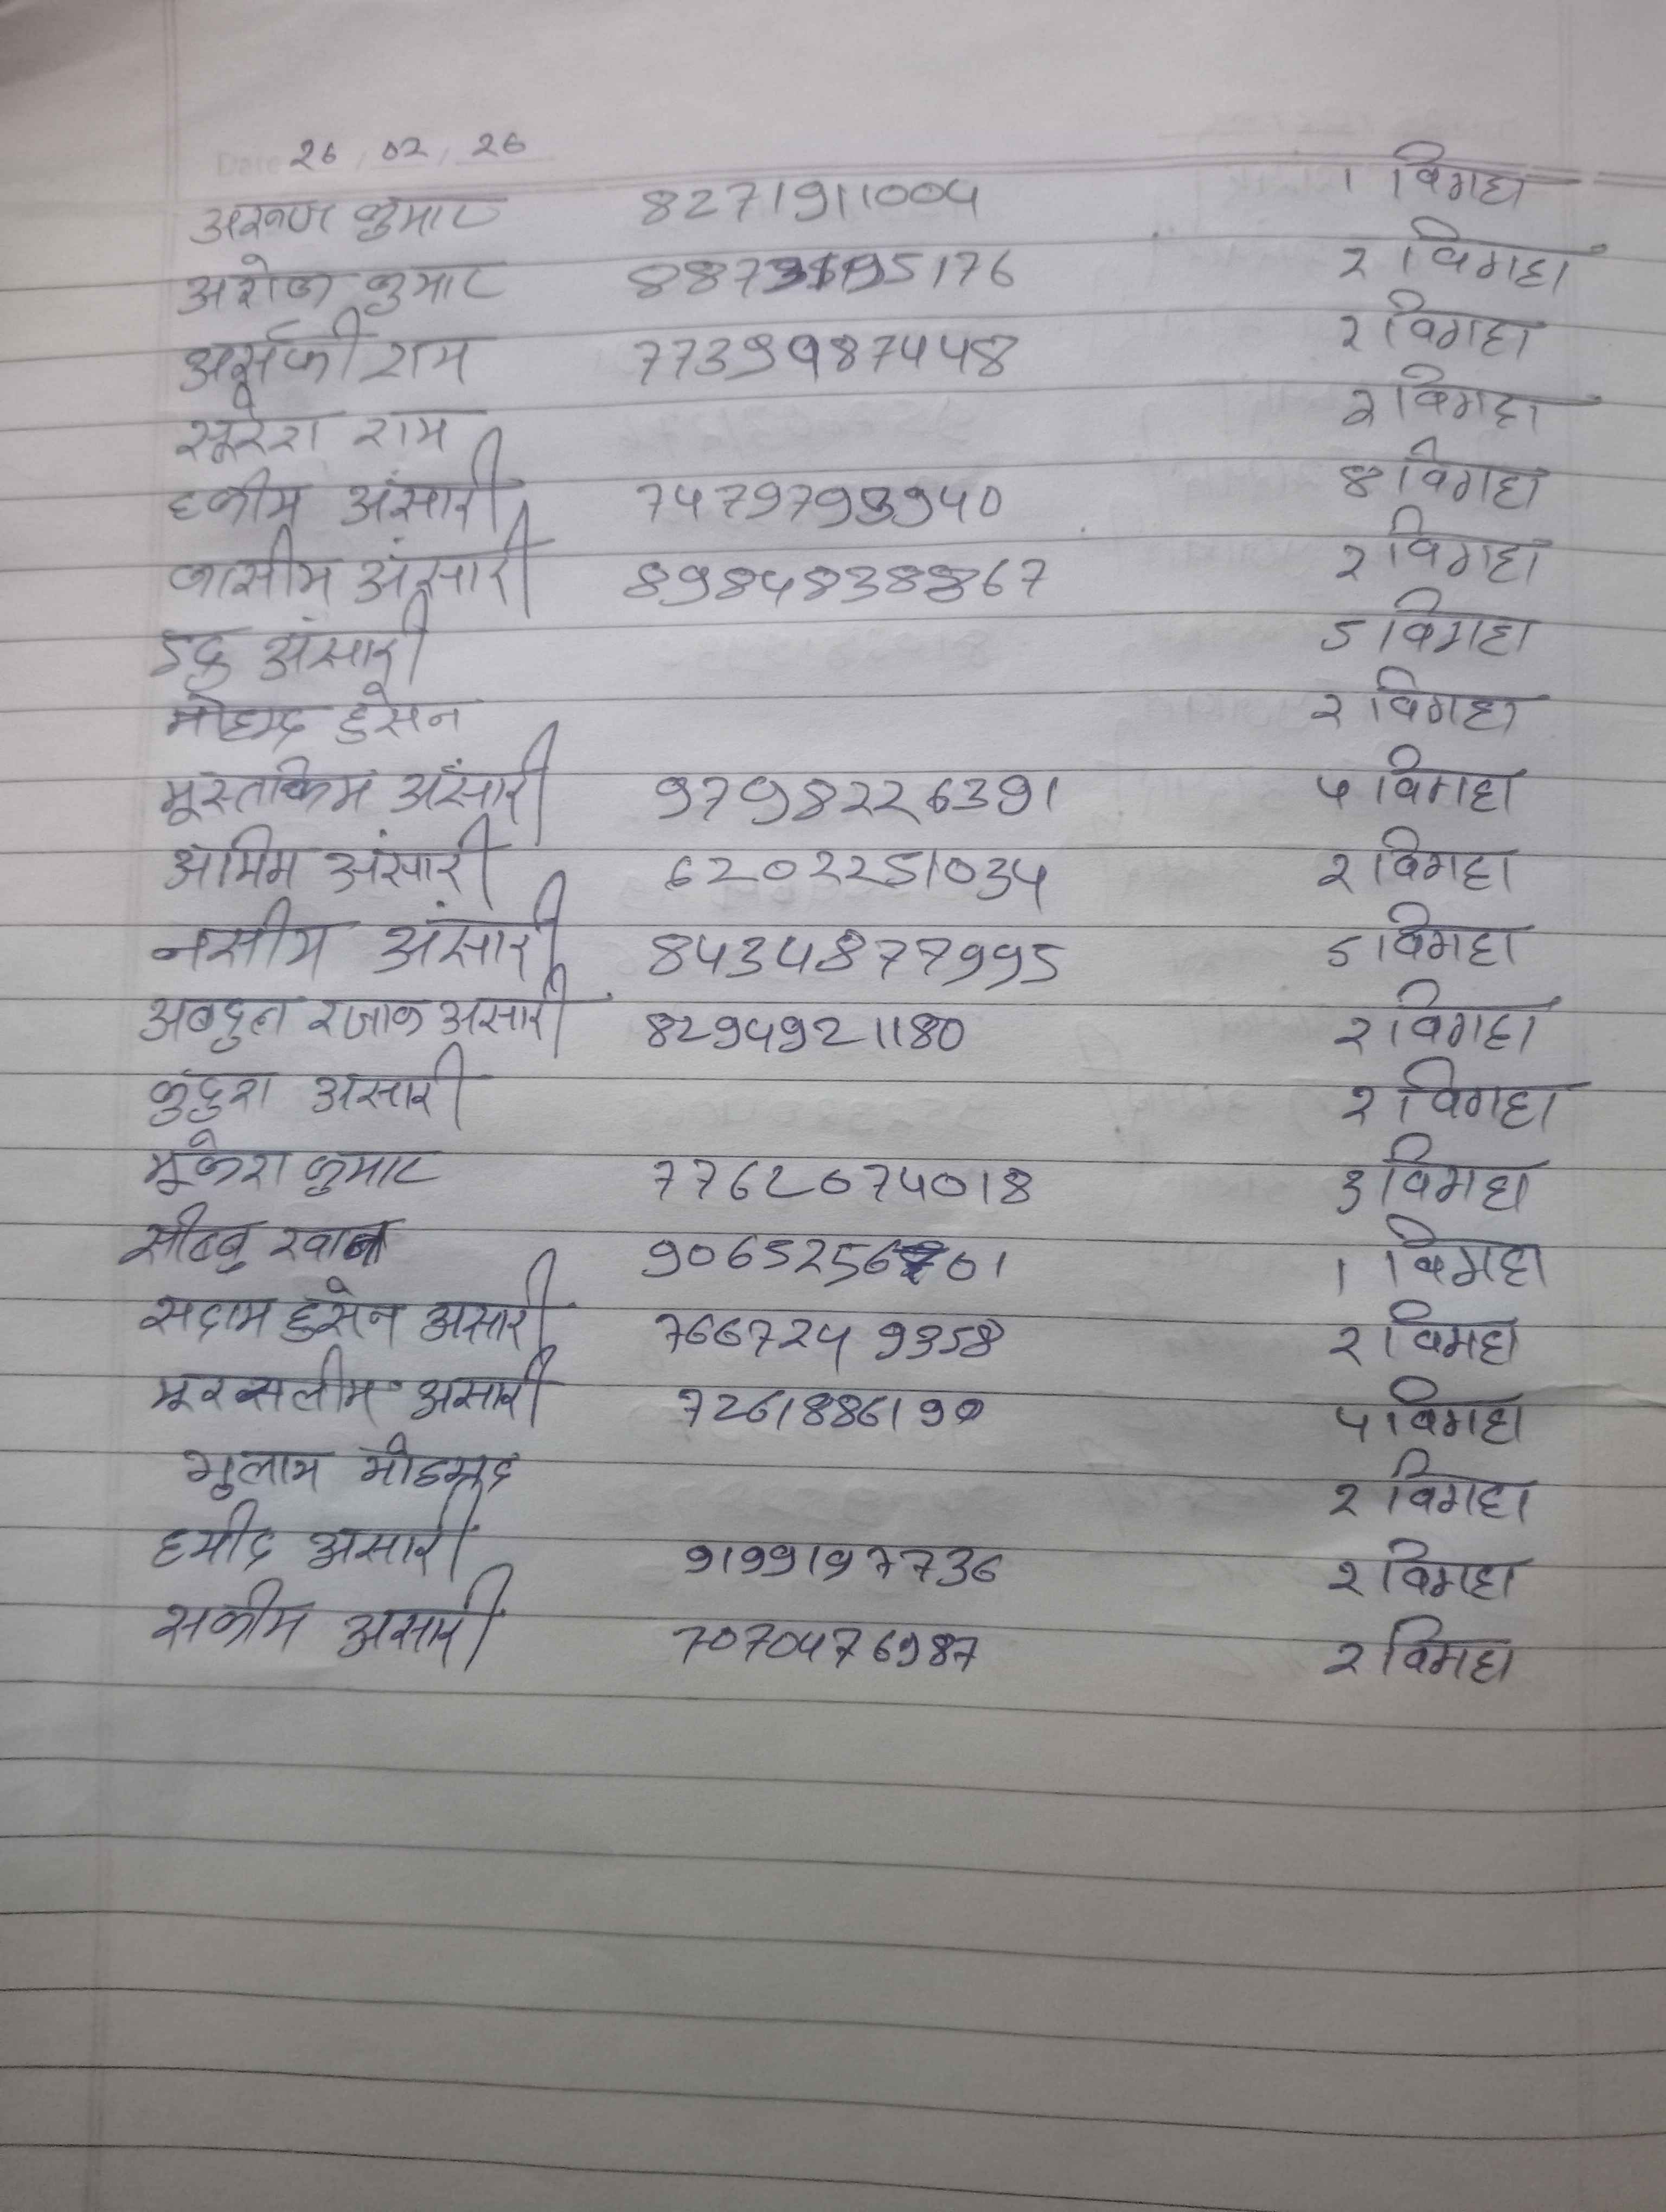 26/02/26
अरूण कुमार 8271911004 1 विगहा
अशोक कुमार 2 विगहा
अर्सफी राम 7739987448 2 विगहा
सूरेश राम 2 विगहा
हकीम अंसारी 7479793940 4 विगहा
कासीम अंसारी 8984838867 2 विगहा
इदु अंसारी 5 विगहा
मोहमद हुसेन 2 विगहा
मूस्तकिम अंसारी 9798226391 5 विगहा
अमिम अंसारी 6202251034 2 विगहा
नसीम अंसारी 8434877995 5 विगहा
अबदुल रजाक असारी 8294921180 2 विगहा
कुदुश असारी 2 विगहा
मूकेश कुमार 7762074018 3 विगहा
खान 1 विगहा
सदाम हुसेन असारी 7667249358 2 विगहा
मूरसलीम असारी 7261886190 5 विगहा
गुलाम मोहमद 2 विगहा
हमीद असारी 9199197736 2 विगहा
सकीम असारी 7070476987 2 विगहा